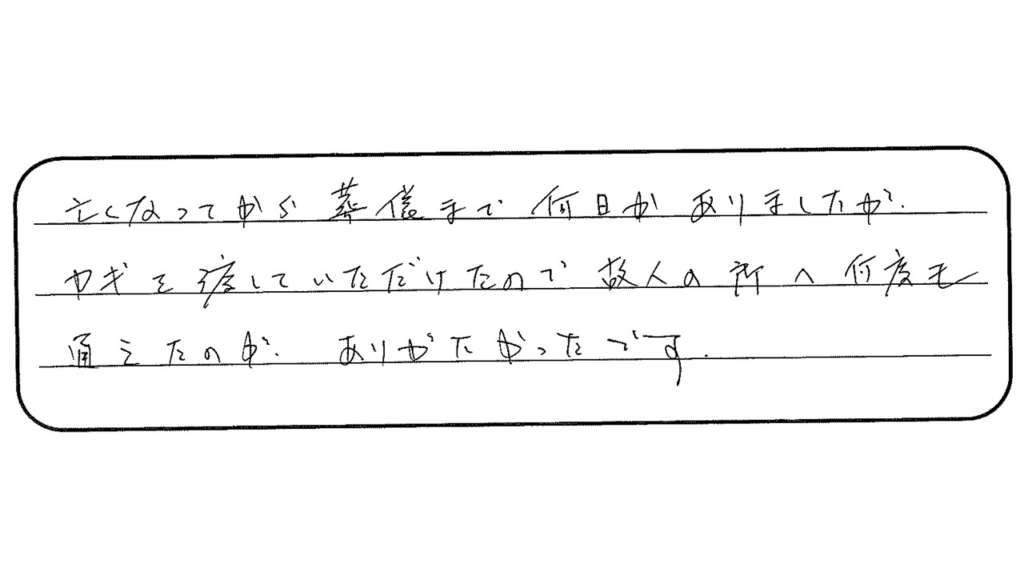 亡くなってから葬儀まで何日かありましたが、
カギを渡していただけたので故人の所へ何度も
通えたのが、ありがたかったです。